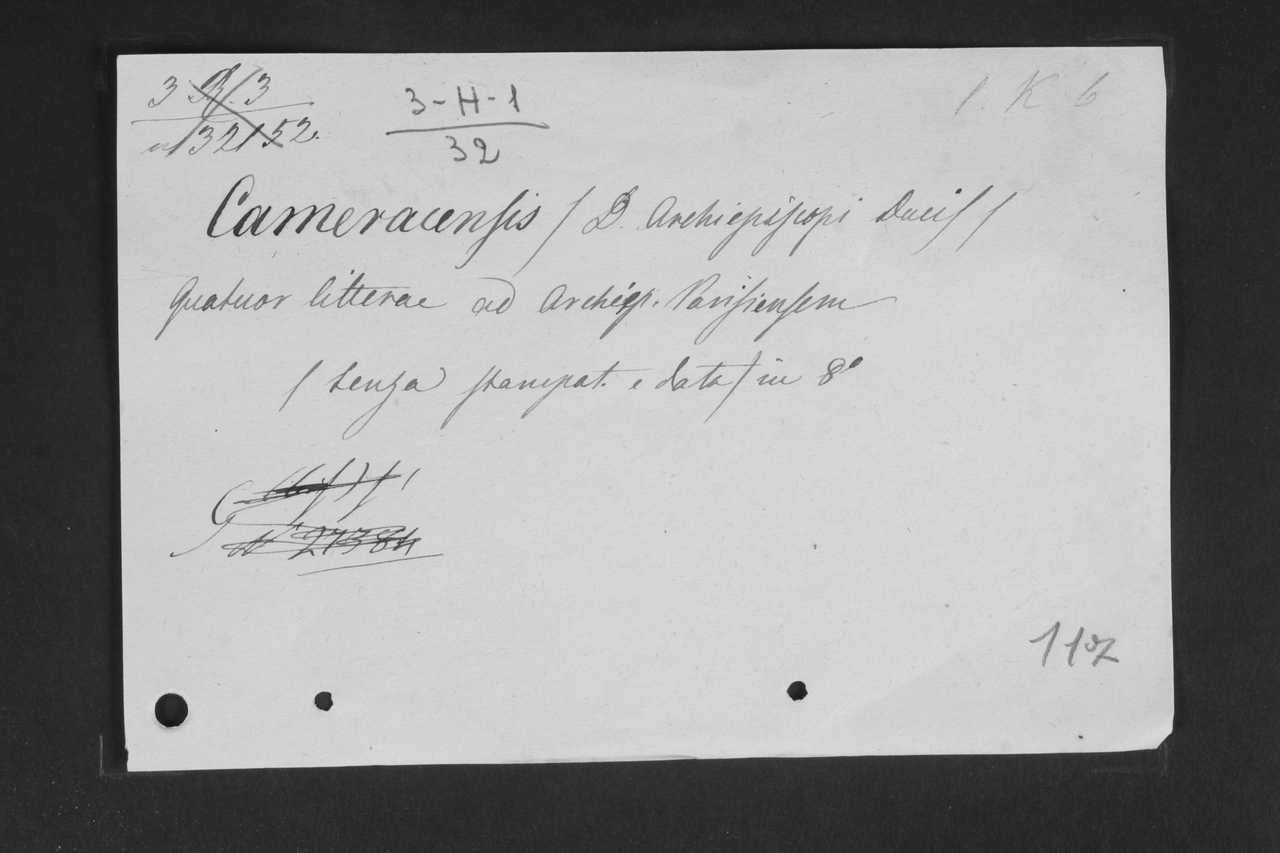 3 B. 3
n 32 / 52.
3-H-1
32
1. K 6
Cameracensis / D. Archiepiscopi Ducis /
Quatuor litterae ad Archiep. Parisiensem
/ senza stampat. e data / in 8°
N 27384